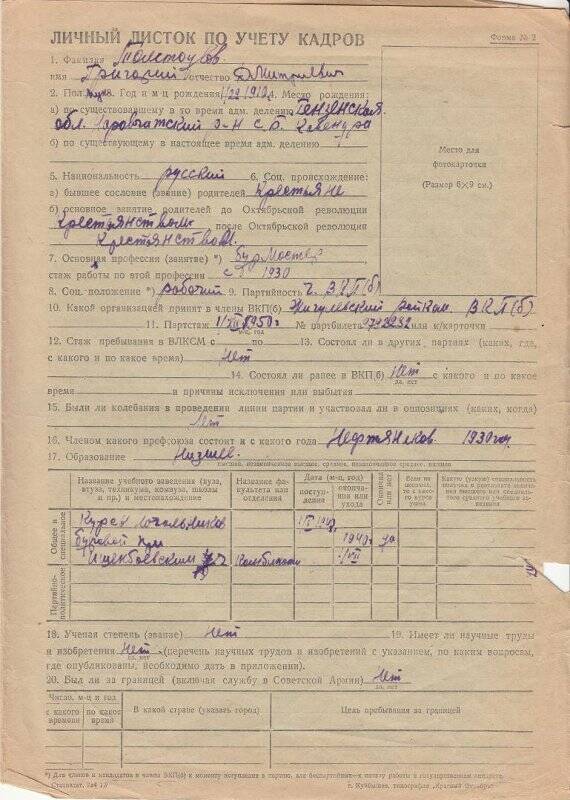 ЛИЧНЫЙ ЛИСТОК ПО УЧЕТУ КАДРОВ
Форма № 2
1. Фамилия
имя Григорий отчество Дмитриевич
2. Пол муж 3. Год и м-ц рождения 4. Место рождения:
а) по существовавшему в то время адм. делению Пензенская
обл.
б) по существующему в настоящее время адм. делению
Место для
фотокарточки
(Размер 6×9 см.)
5. Национальность русский 6. Соц. происхождение:
а) бывшее сословие (звание) родителей Крестьяне
б) основное занятие родителей до Октябрьской революции
Крестьянством после Октябрьской революции
Крестьянством
7. Основная профессия (занятие) *) бур. Мастер
стаж работы по этой профессии с 1930
8. Соц. положение *) рабочий 9. Партийность ч. ВКП(б)
10. Какой организацией принят в члены ВКП(б) райком ВКП(б)
11. Партстаж 1950 № партбилета или к/карточки
м-ц, год
12. Стаж пребывания в ВЛКСМ с по 13. Состоял ли в других партиях (каких, где,
с какого и по какое время) Нет
14. Состоял ли ранее в ВКП(б) Нет с какого и по какое
да, нет
время и причины исключения или выбытия
15. Были ли колебания в проведении линии партии и участвовал ли в оппозициях (каких, когда)
Нет
16. Членом какого профсоюза состоит и с какого года Нефтяников 1930 год
17. Образование Низшее
высшее, незаконченное высшее, среднее, незаконченное среднее, низшее
Название учебного заведения (вуза, втуза, техникума, комвуза, школы и пр.) и местонахождение
Название факультета или отделения
Дата (м-ц, год)
поступления
окончания или ухода
Окончил или нет
Если не окончил, то с какого курса ушел
Общее и специальное
Партийно-политическое
1940
1940 да
18. Ученая степень (звание) Нет 19. Имеет ли научные труды
и изобретения Нет (перечень научных трудов и изобретений с указанием, по каким вопросам,
да, нет
где опубликованы, необходимо дать в приложении).
20. Был ли за границей (включая службу в Советской Армии) Нет
да, нет
Число, м-ц и год
с какого времени
по какое время
В какой стране (указать город)
Цель пребывания за границей
*) Для членов и кандидатов в члены ВКП(б) к моменту вступления в партию, для беспартийных—к началу работы в государственном аппарате.
г. Куйбышев, типография „Красный Октябрь“